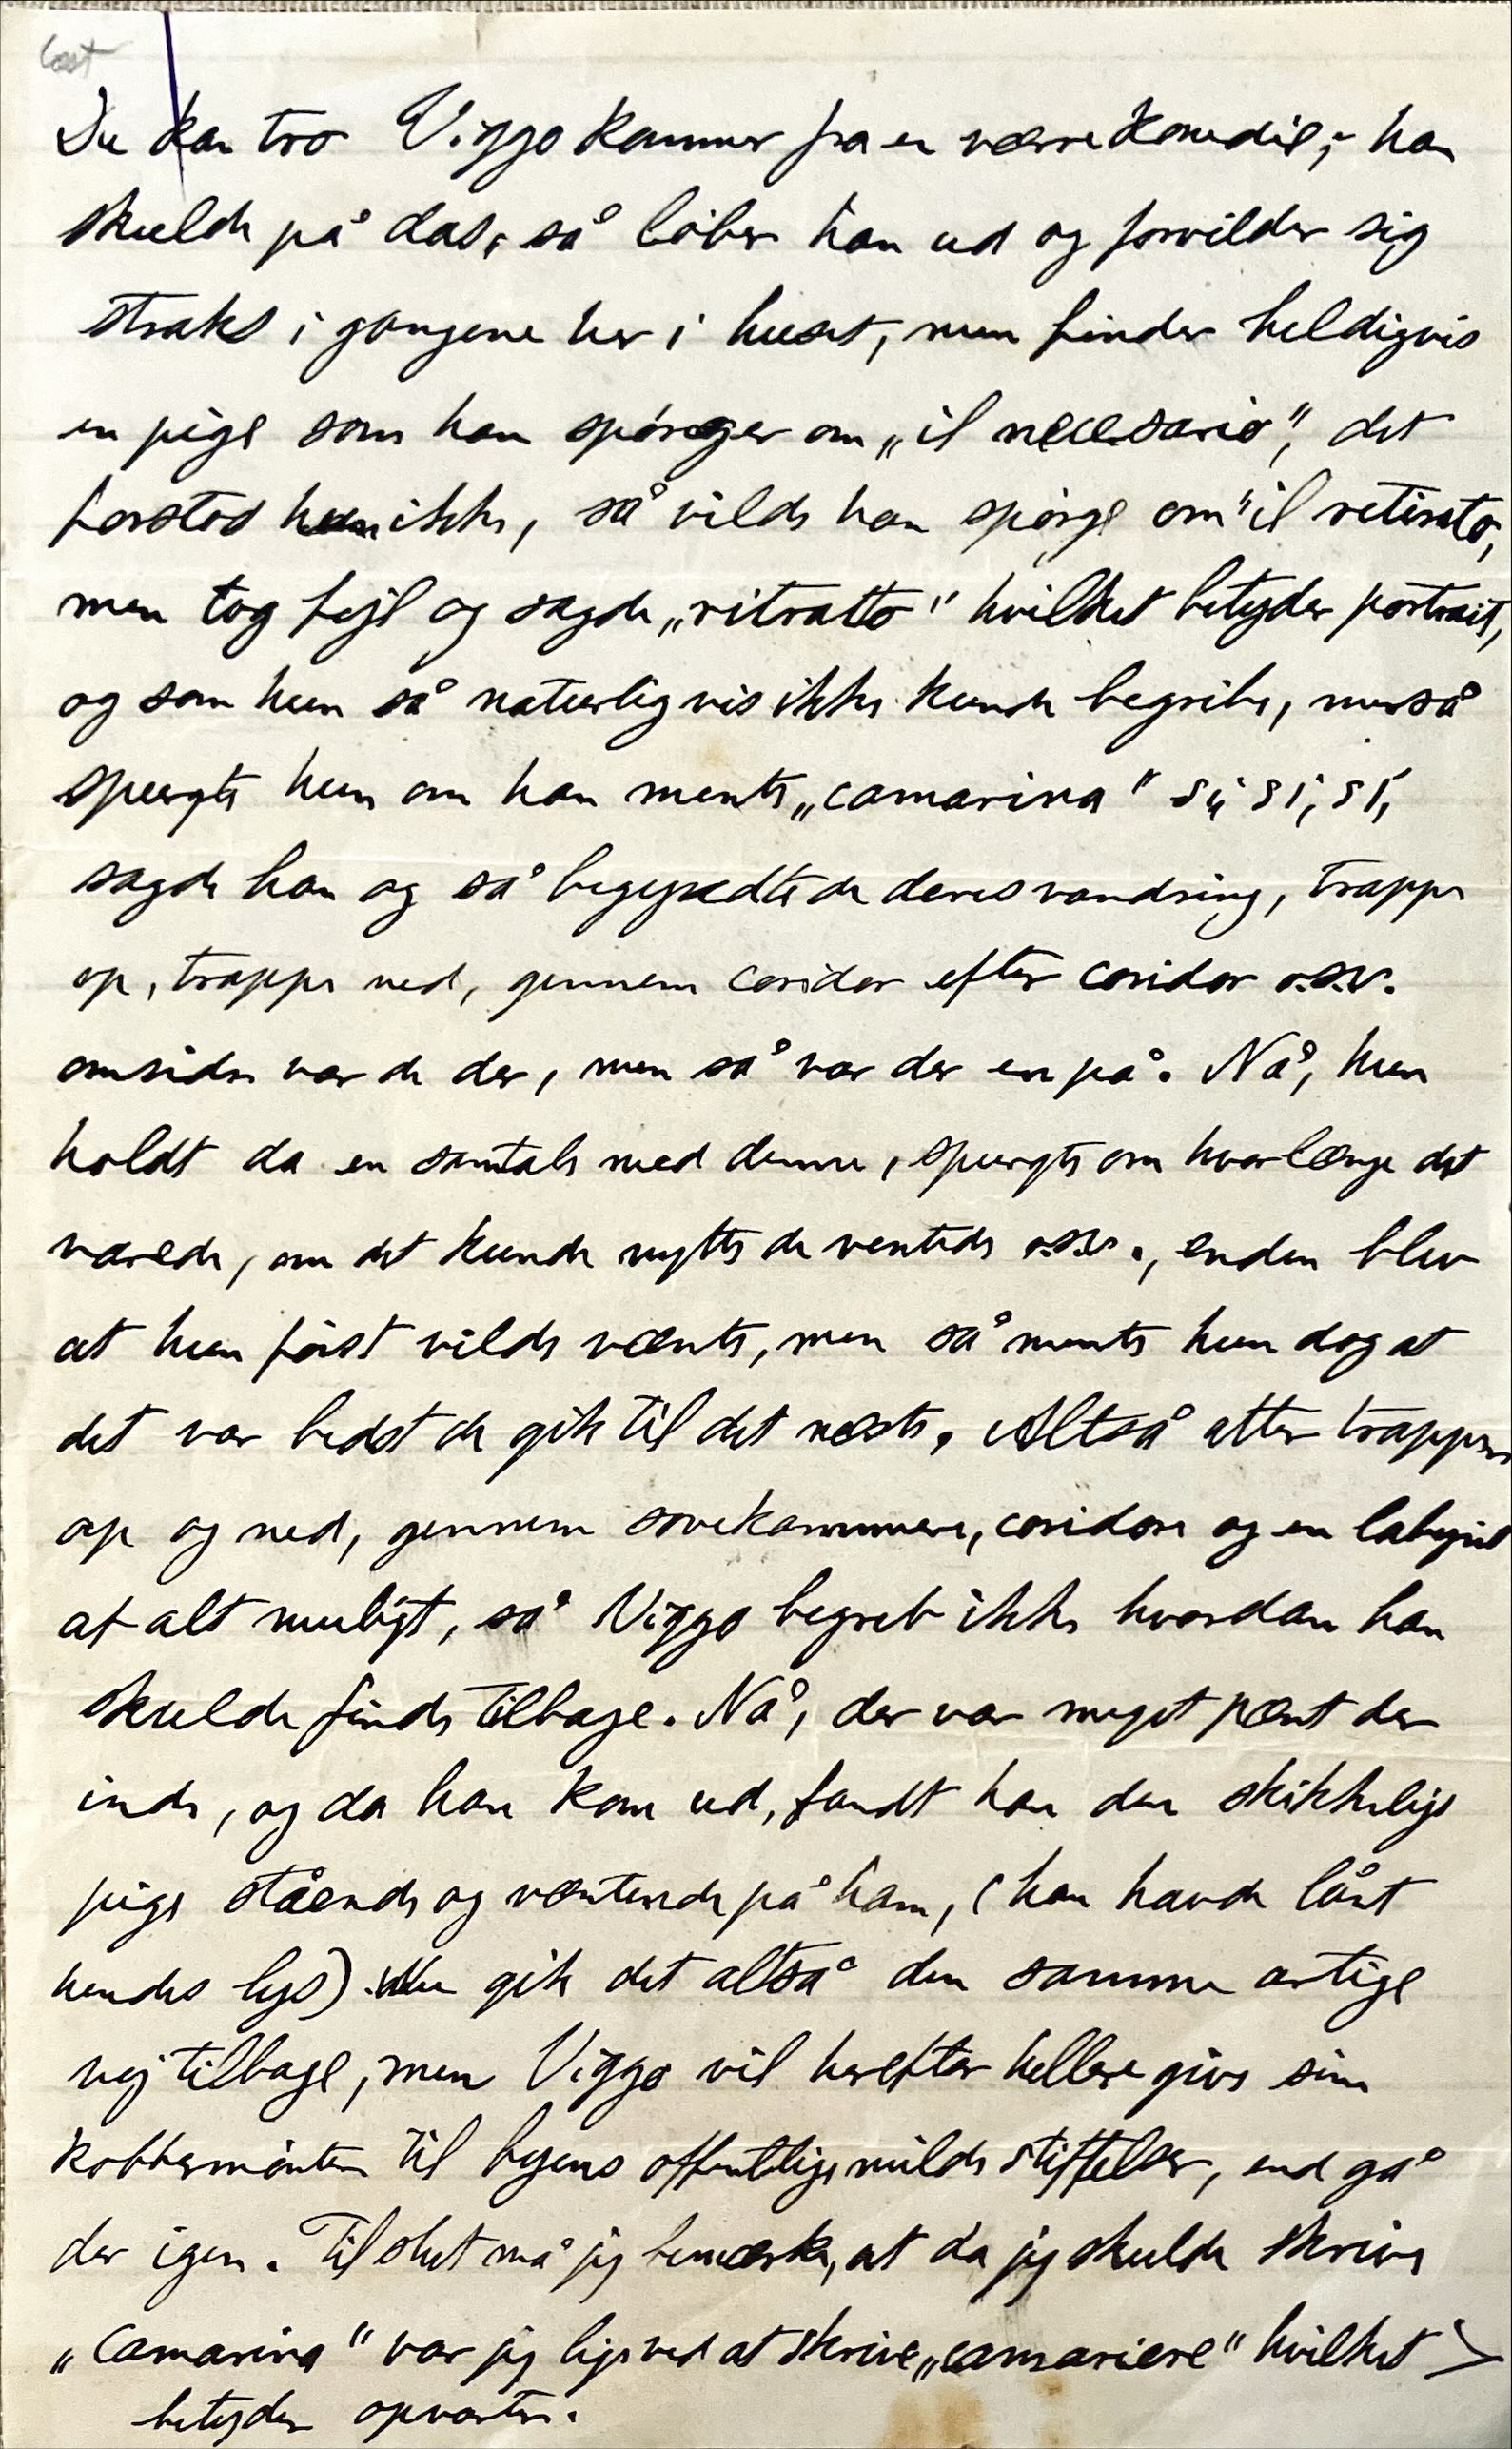 læst
Du kan tro Viggo kommer fra en værre komedie, han
skulde på das, så løber han ud og forvilder sig
straks i gangene her i huset, men finder heldigvis
en pige som han spørger om „il necesario", det
forstod hun ikke, så vilde han spørge om "il retirato,
men tog fejl og sagde „ritratto" hvilket betyder portrait,
og som hun så naturligvis ikke kunde begribe, men så
spurgte hun om han mente „camarina" si, si, si,
sagde han og så begyndte de deres vandring, trappe
op, trappe ned, gennem coridor efter coridor o.s.v.
omsider var de der, men så var der en på. Nå, hun
holdt da en samtale med denne, spurgte om hvorlænge det
varede, om det kunde nytte de ventede o.s.v., enden blev
at hun først vilde vænte, men så mente hun dog at
det var bedst de gik til det næste. Altså atter trapper
op og ned, gennem sovekammere, coridore og en labyrint
af alt muligt, så Viggo begreb ikke hvordan han
skulde finde tilbage. Nå, der var meget pænt der
inde, og da han kom ud, fandt han den skikkelige
pige stående og ventende på ham, (han havde lånt
hendes lys). Nu gik det altså den samme artige
vej tilbage, men Viggo vil herefter hellere give sine
kobbermønter til byens offentlige milde stiftelser, end gå
der igen. Til slut må jeg bemærke, at da jeg skulde skrive
„camarina" var jeg lige ved at skrive „camariere" hvilket >
betyder opvarter.